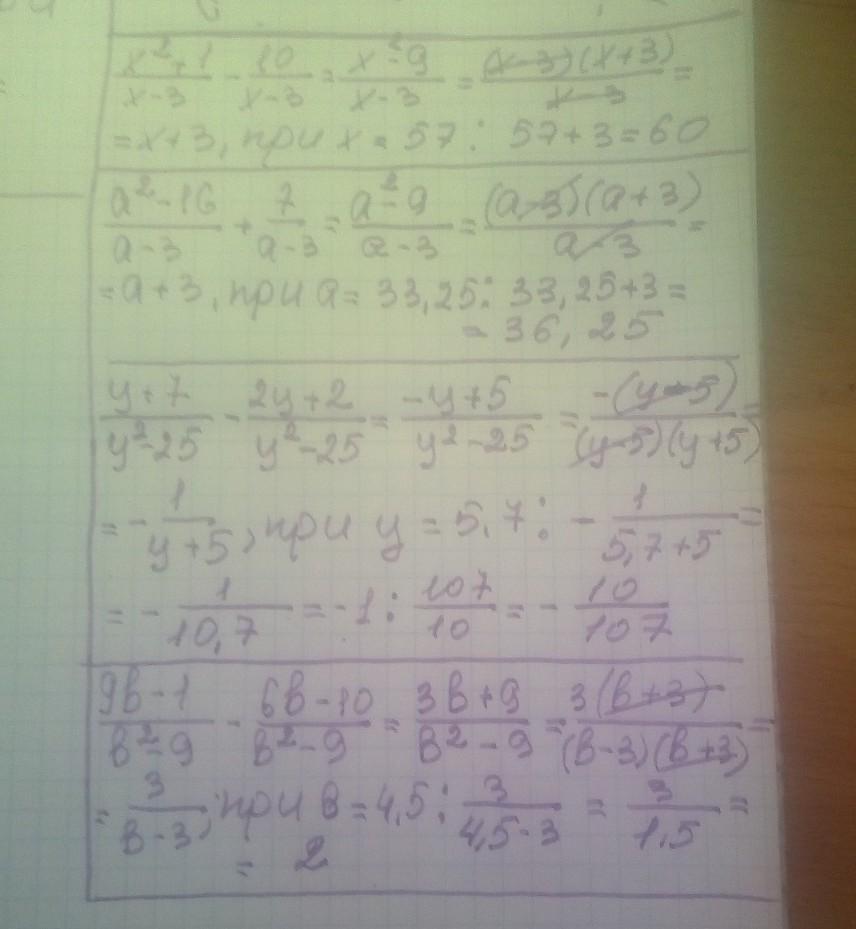 x²+1/x-3 - 10/x-3 = x²-9/x-3 = (x-3)(x+3)/x-3 =
= x+3, при x = 57: 57+3=60
a²-16/a-3 + 7/a-3 = a²-9/a-3 = (a-3)(a+3)/a-3 =
= a+3, при a = 33,25: 33,25+3 =
= 36,25
y+7/y²-25 - 2y+2/y²-25 = -y+5/y²-25 = -(y-5)/(y-5)(y+5) =
= -1/y+5, при y = 5,7: -1/5,7+5 =
= -1/10,7 = -1: 107/10 = -10/107
9в-1/в²-9 - 6в-10/в²-9 = 3в+9/в²-9 = 3(в+3)/(в-3)(в+3) =
= 3/в-3; при в = 4,5: 3/4,5-3 = 3/1,5 =
= 2